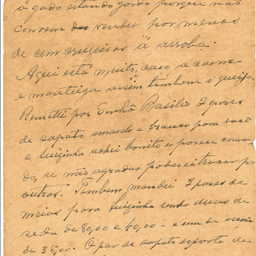 o gado estando gordo porque não
convem vender por menos
de cem mil reis a arroba.
Aqui está muito caro a carne
e manteiga assim tambem o queijo.
Remetti por Emilio Basilio 2 pares
de sapato amarelo e branco para você
e Luizinha achei bonito e
se não agradar poderei trocar por
outros. Tambem mandei 2 pares de
meias para Luizinha sendo de
seda de 8$00 e 6$00 - e um
de 3$00. O par de sapato esporte de